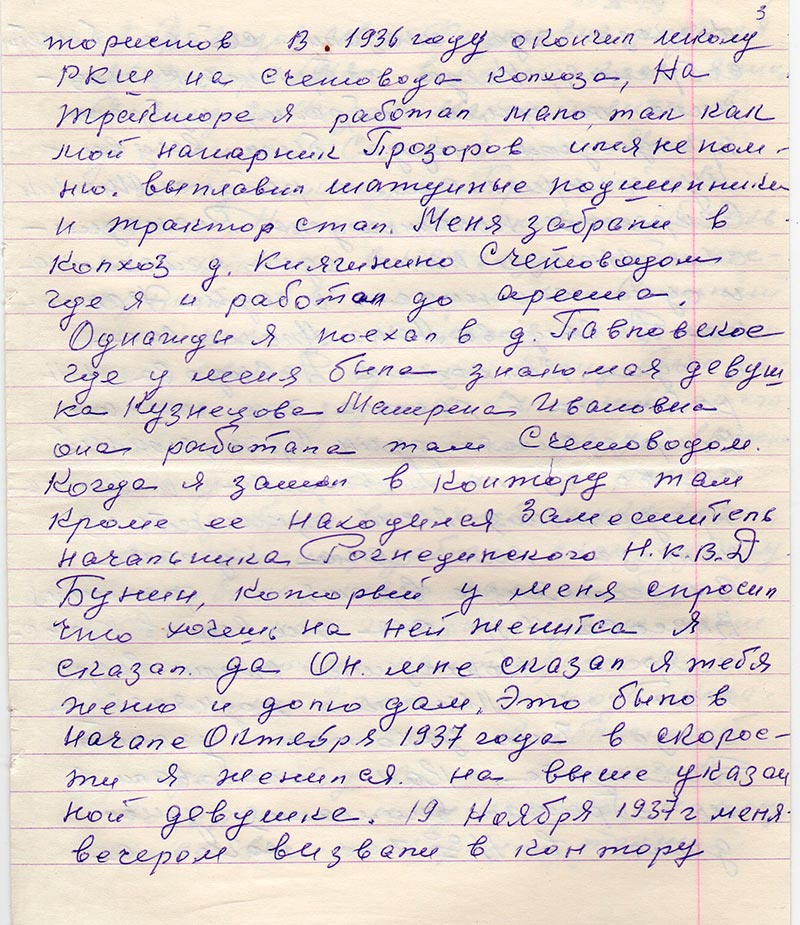 3
тористов В. 1936 году окончил школу
РКШ на счетовода колхоза, На
тракторе я работал мало, так как
мой напарник Прозоров имя не пом-
ню. выплавил шатунные подшипники
и трактор стал. Меня забрали в
колхоз д. Княгинино Счетоводом
где я и работал до ареста.
Однажды я поехал в д. Павловское
где у меня была знакомая девуш
ка Кузнецова Матрена Ивановна
она работала там Счетоводом.
Когда я зашол в контору там
кроме ее находился Заместитель
начальника Рогнединского Н.К.В.Д
Бунин, который у меня спросил
что хочешь на ней женитса Я
сказал. да Он. мне сказал я тебя
женю и долю дам, Это было в
начале Октября 1937 года в скорос-
ти я женился. на выше указан
ной девушке. 19 Ноября 1937 г меня
вечером визвали в контору